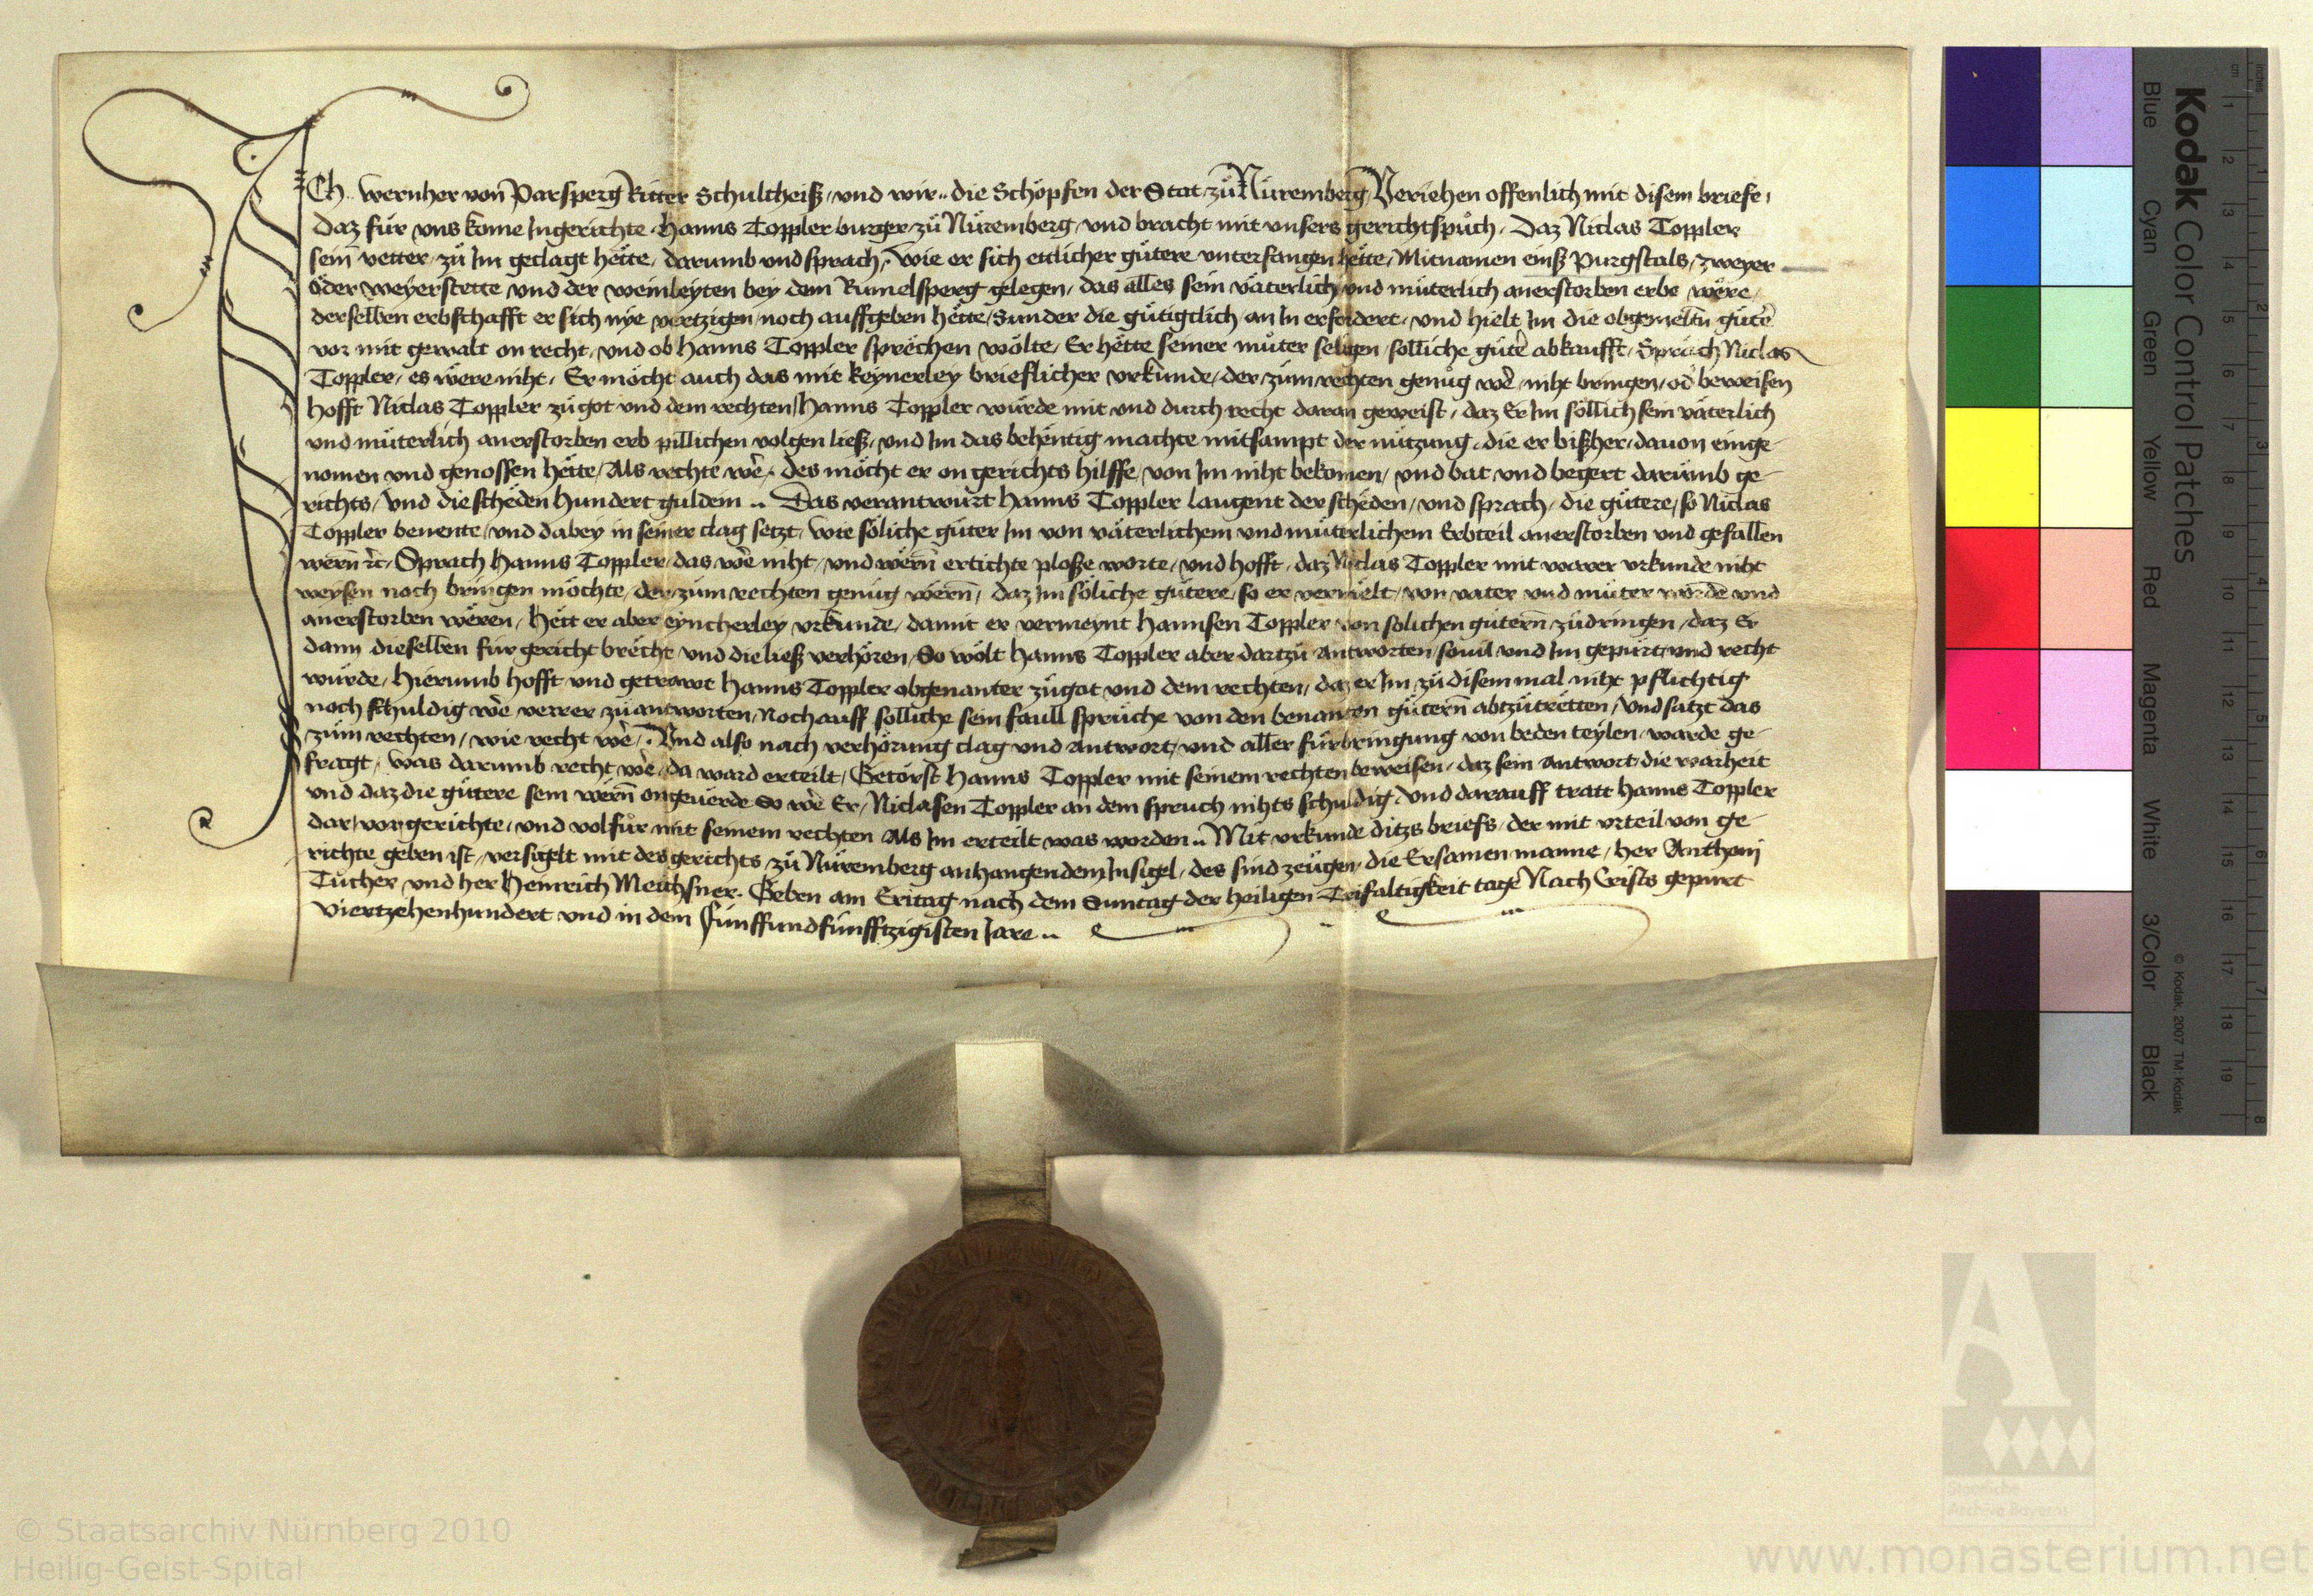 ICh Wernher von Parsperg Ritter Schultheiß, und wir.. die Schöpfen der Stat zů Nüremberg Veriehen offenlich mit disem briefe,
daz für uns kome Ingerichte Hanns Toppler burger zů Nüremberg, und bracht mit unsers gerichtspůch, Daz Niclas Toppler
sein vetter, zů Im geclagt hette, darumb und sprach, Wie er sich ettlicher gütere unterfangen hette, Mitnamen einß Purgstals, zweyer
öder weyerstette und der weinleyten bey dem Rumelsperg gelegen, das alles sein väterlich und müterlich anerstorben erbe were,
derselben erbschafft er sich nye vertzigen, noch auffgeben hette, Sunder die gütigtlich an In erfordert, und hielt Im die obgemeltn güter̄
vor mit gewalt on recht, und ob Hanns Toppler sprechen wölte, Er hette seiner můter seligen, solliche güter̄ abkaufft, Sprach Niclas
Toppler, es were niht, Er möcht auch das mit keynerley brieflicher urkunde, der zům rechten genůg wer̄, niht bringen, od̄ beweisen
hofft Niclas Toppler zů got und dem rechten, Hanns Toppler würde mit und durch recht daran geweist, daz Er Im söllich sein väterlich
und müterlich anerstorben erb pillichen volgen ließ, und Im das behentig machte mitsampt der nützung, die er bißher, davon einge-
nomen und genossen hette, Als rechte wer̄, des möcht er on gerichts hilffe, von Im niht bekomen, und bat und begert darümb ge-
richts, und die scheden hundert guldein .. Das verantwurt Hanns Toppler laugent der scheden, und sprach, die gütere, so Niclas
Toppler benente, und dabey in seiner clag setzt, wie söliche güter Im von väterlichem und müterlichem Erbteil anerstorben und gefallen
wern̄ ꝛc, Sprach Hanns Toppler, das wer̄ niht, und wern̄ ertichte ploße worte, und hofft, daz Niclas Toppler mit warer urkunde niht
weysen noch bringen möchte, der zům rechten genůg wern̄, daz Im söliche gütere, so er vermelt, von vater und můter worden und
anerstorben weren, Hett er aber eyncherley urkunde, damit er vermeynt Hannsen Toppler von solichen gütern̄ zůdringen, daz Er
dann dieselben für gericht brecht und die ließ verhören, So wölt Hanns Toppler aber dartzů antworten, sovil und Im gepürt, und recht
würde, Hierumb hofft und getrawt Hanns Toppler obgenanter zů got und dem rechten, daz er Im zů disem mal niht pflichtig
noch schuldig wer̄ verrer zů antworten, Noch auff solliche sein faull sprüche von den benanten gütern̄ abtzůtretten, Und satzt das
zům rechten, wie recht wer̄, Und also nach verhörung clag und antwort, und aller fürbringung von beden teylen, warde ge-
fragt, was darumb recht wer̄, da ward erteilt, Getörst Hanns Toppler mit seinem rechten beweisen, daz sein antwort, die warheit
und daz die gütere sein wern̄ ongeuerde So wer̄ Er, Niclasen Toppler an dem spruch nihts schuldig, Und darauff tratt Hanns Toppler
dar, vor gerichte, und volfůr mit seinem rechten Als Im erteilt was worden .. Mit urkunde ditzs briefs, der mit urteil von ge-
richte geben ist, versigelt mit des gerichts zů Nüremberg anhangendem Insigel, des sind zeügen, die Ersamen manne, her Anthonj
Tucher und her Heinrich Meichsner. Geben am Eritag nach dem Suntag der heiligen Trifaltigkeit tage Nach Crists gepürt
Viertzehenhundert und in dem fünffundfünfftzigisten Jare ..
Kodak Color Control Patches
Blue Cyan Green Yellow Red Magenta White 3/Color Black
© Kodak, 2007 TM: Kodak
© Staatsarchiv Nürnberg 2010
Heilig-Geist-Spital
Staatliche
Archive Bayerns
www.monasterium.net